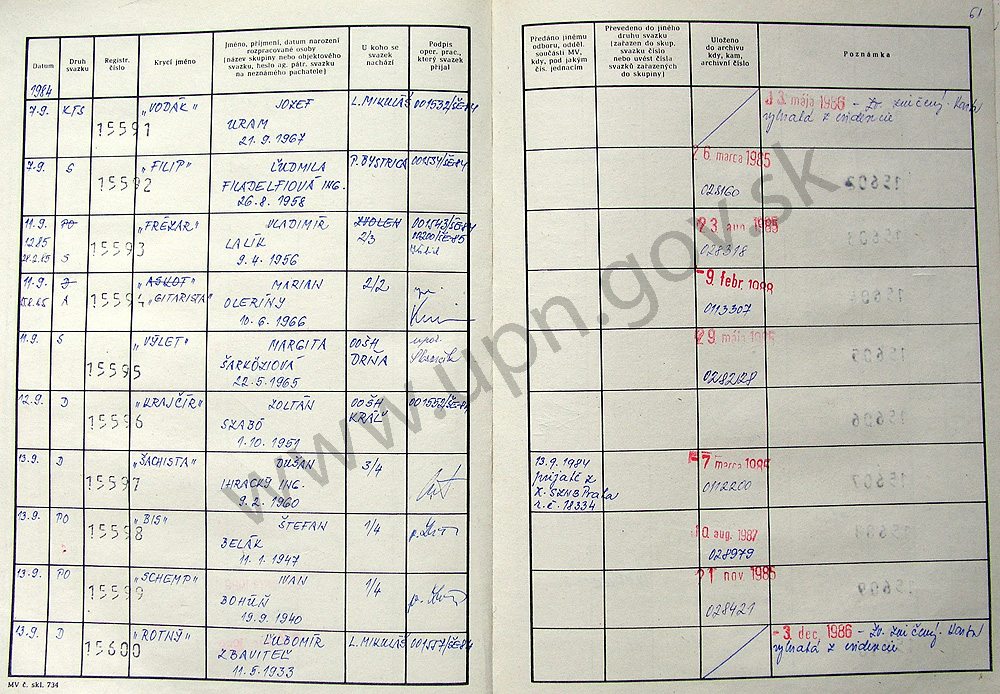 61
Datum
Druh svazku
Registr. číslo
Krycí jméno
Jméno, příjmení, datum narození
rozpracované osoby
(název skupiny nebo objektového
svazku, heslo ag. pátr. svazku
na neznámého pachatele)
U koho se
svazek
nachází
Podpis
oper. prac.,
který svazek
přijal
Předáno jinému
odboru, odděl.
součásti MV,
kdy, pod jakým
čís. jednacím
Převedeno do jiného
druhu svazku
(zařazen do skup.
svazku číslo
nebo uvést čísla
svazků zařazených
do skupiny)
Uloženo
do archivu
kdy, kam,
archivní číslo
Poznámka
1984
7.9. KTS 15591 „VODÁK" JOZEF L. MIKULÁŠ 001532/ŠE-84
URAM
21.9.1967
13. mája 1986 - Zv. zničený. Karta
vybratá z evidencie
7.9. S 15592 „FILIP" ĽUDMILA P. BYSTRICA 001534/ŠE-84
FILADELFIOVÁ ING.
26.8.1958
26. marca 1985
028160
11.9. PO 15593 „FRÉZAR" VLADIMÍR ZVOLEN 001543/ŠE-84
LALÍK 2/3
S 9.4.1956
23. aug. 1985
028318
11.9. 15594 „ASKOT" MARIAN 2/2
A „GITARISTA" OLERINY
10.6.1966
-9. febr. 1988
0113307
11.9. S 15595 „VÝLET" MARGITA OOŠH
ŠARKÖZIOVÁ DRŇA
22.5.1965
29. mája
0282128
12.9. D 15596 „KRAJČÍR" ZOLTÁN OOŠH 001552/ŠE-84
SZABÓ KRÁĽ
1.10.1951
13.9. D 15597 „ŠACHISTA" DUŠAN 3/4
IHRACKÝ ING.
9.2.1960
13.9.1984
prijaté z
X. SZNB Praha
r.č. 18334
-7 marca
0112200
13.9. PO 15598 „BIS" ŠTEFAN 1/4
BELÁK
11.1.1947
10 aug. 1987
028979
13.9. PO 15599 „SCHEMP" IVAN 1/4
BOHÚŇ
19.9.1940
21 nov. 1985
028421
13.9. D 15600 „ROTNÝ" ĽUBOMÍR L. MIKULÁŠ 001557/ŠE-84
ZBAVITEĽ
11.5.1933
-3. dec. 1986 - Zv. zničený. Karta
vybratá z evidencie
MV č. skl. 734
www.upn.gov.sk